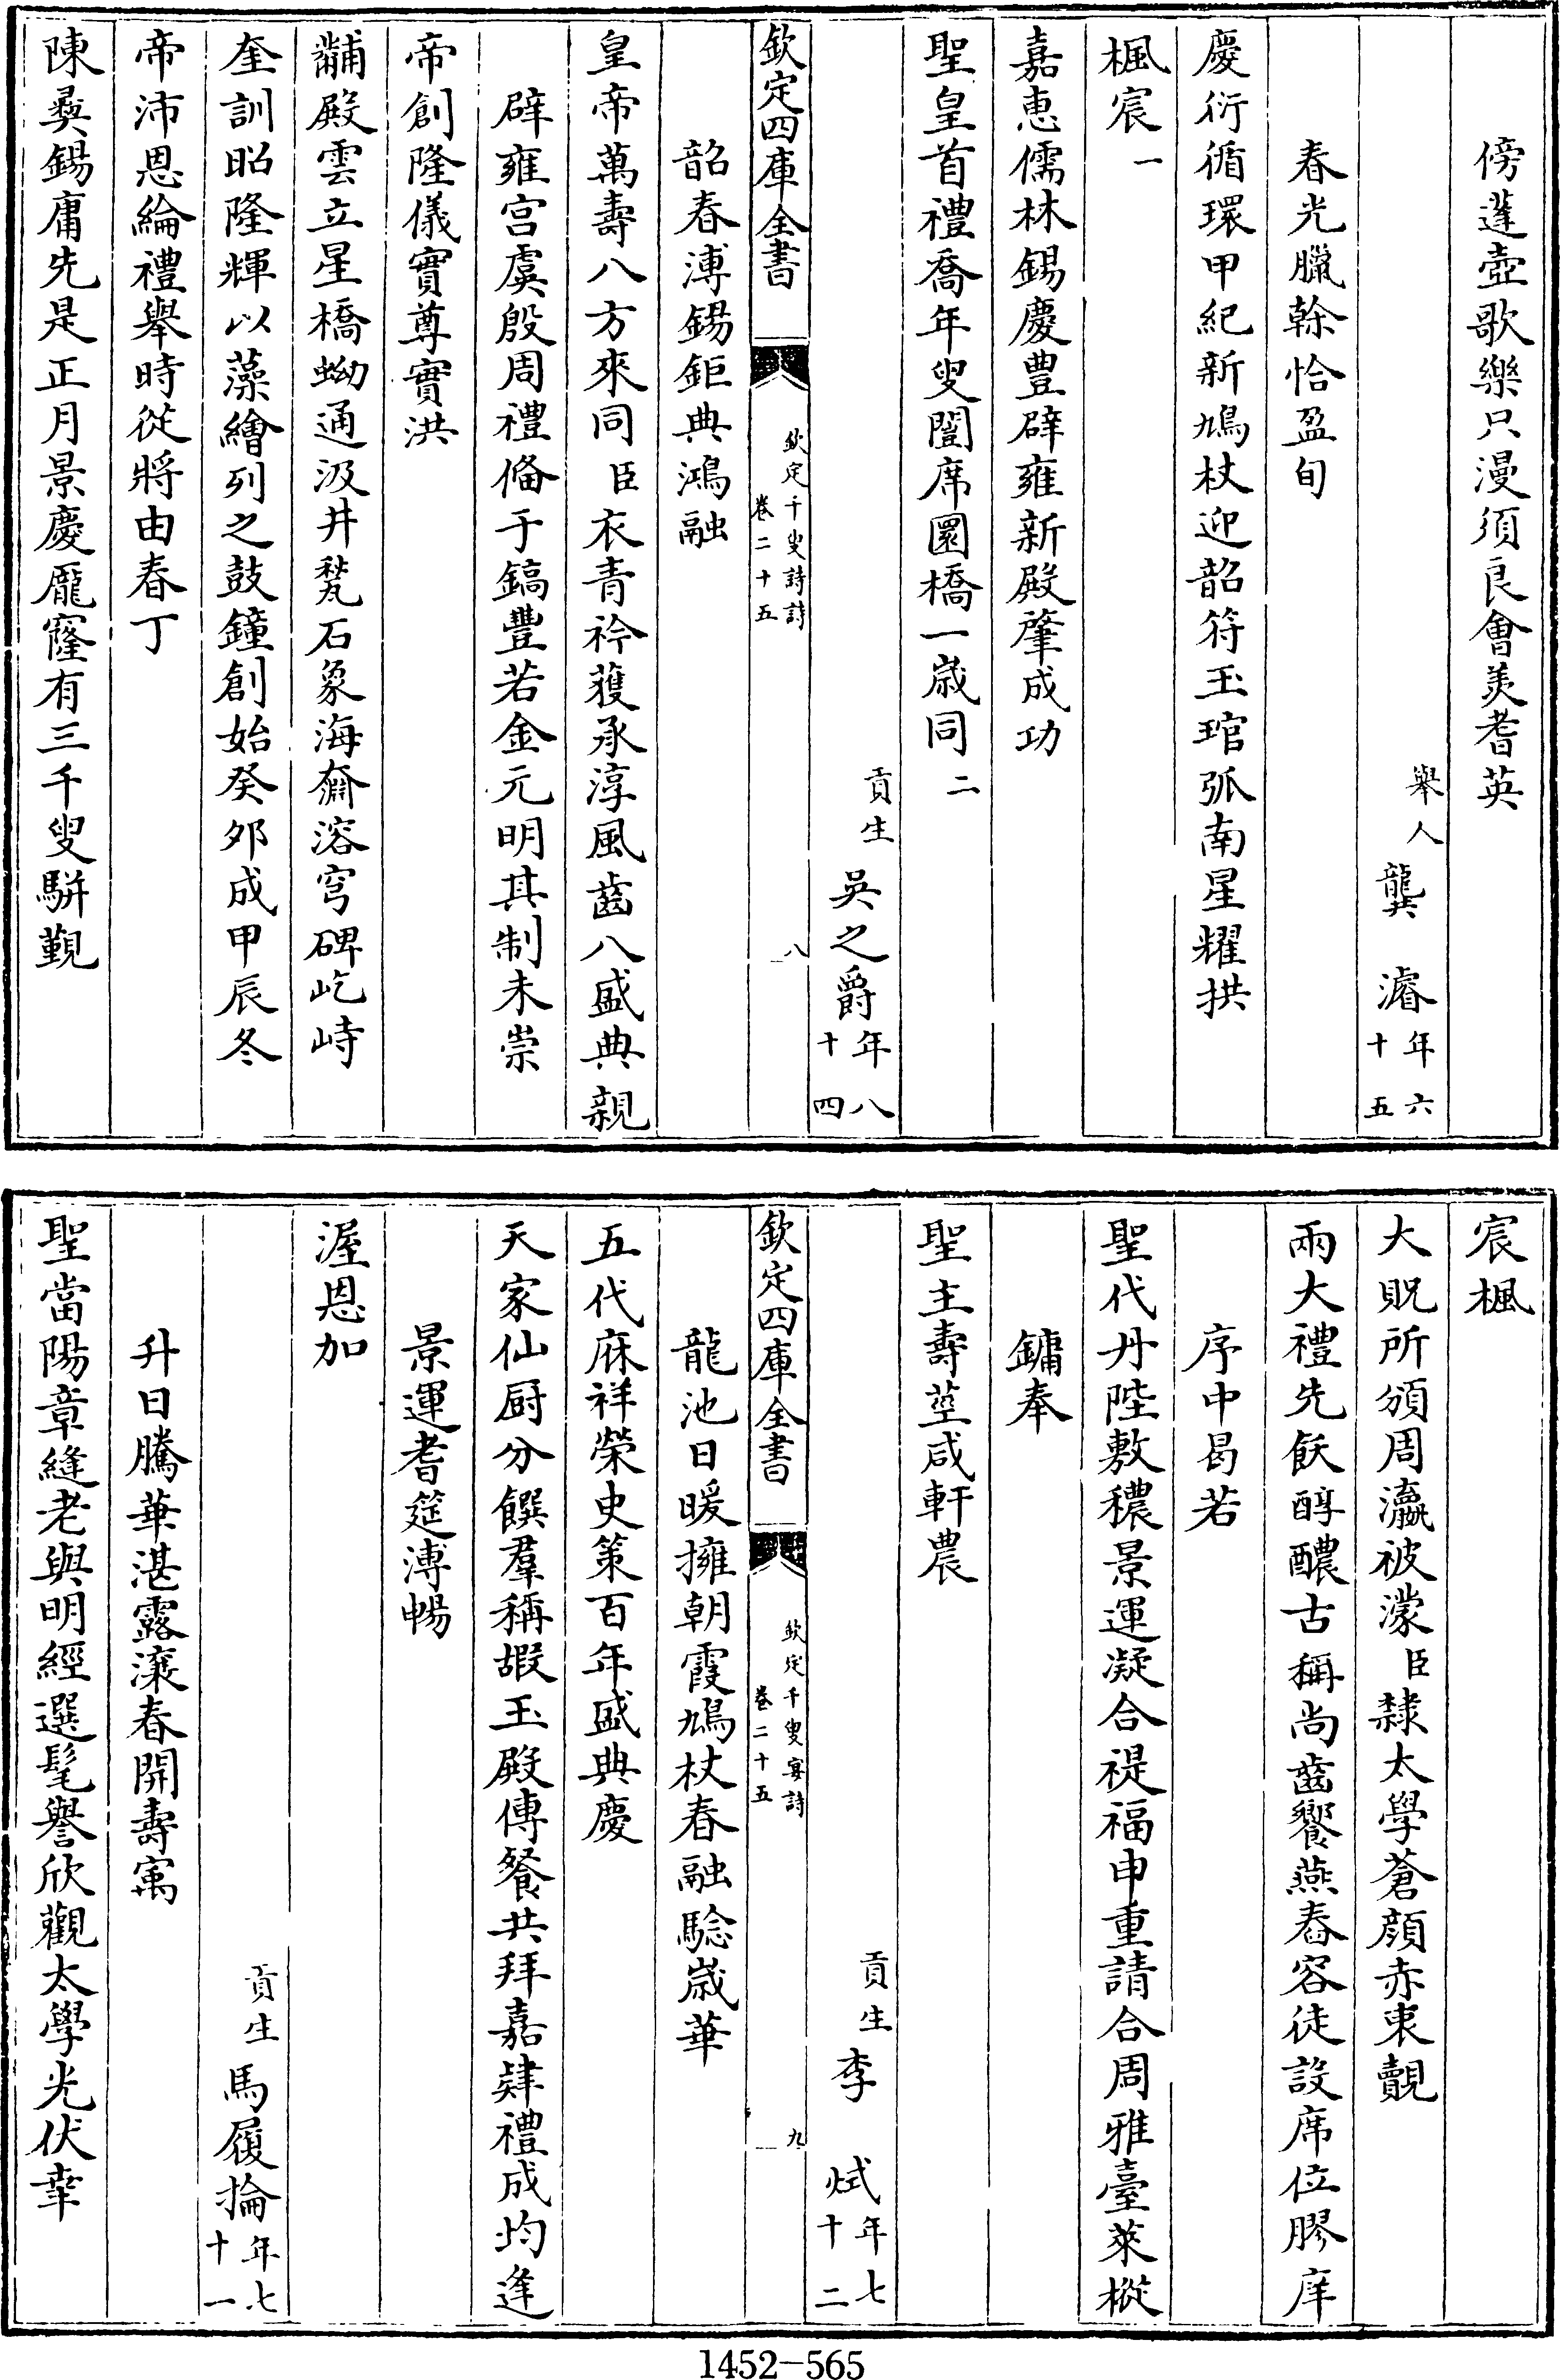 傍蓬壺歌樂只漫須良會羨耆英
舉人龔濬年六十五
春光臘榦恰盈旬
慶衍循環甲紀新鳩杖迎韶符玉琯弧南星耀拱
楓宸一
嘉惠儒林錫慶豐辟雍新殿肇成功
聖皇首禮喬年叟闓席圜橋一嵗同二
貢生吳之爵年八十四
欽定四庫全書
欽定千叟詩詩
卷二十五
八
韶春溥錫鉅典鴻融
皇帝萬壽八方來同臣衣青衿䕶承淳風齒八盛典親
辟雍宫虞殷周禮偹于鎬豐若金元明其制未崇
帝創隆儀實尊實洪
黼殿雲立星橋蚴通汲井甃石象海齌溶穹碑屹峙
奎訓昭隆輝以藻繪列之鼓鐘創始癸夘成甲辰冬
帝沛恩綸禮舉時從將由春丁
陳彝錫庸先是正月景慶龎窿有三千叟駢覲
宸楓
大貺所頒周瀛被濛臣隸太學蒼顔赤衷覿
兩大禮先飫醇醲古稱尚齒饗燕舂容徒設席位膠庠
序中曷若
聖代丹陛敷穠景運凝合禔福申重請合周雅臺萊樅
鏞奉
聖主壽莖咸軒農
貢生李烒年七十二
欽定四庫全書
欽定千叟宴詩
卷二十五
九
龍池日暖擁朝霞鳩杖春融騐嵗華
五代庥祥榮史策百年盛典慶
天家仙厨分饌羣稱嘏玉殿傳餐共拜嘉肄禮成均逢
景運耆筵溥暢
渥恩加
貢生馬履掄年七十一
升日騰華湛露瀼春開壽㝢
聖當陽章縫老與明經選髦譽欣觀太學光伏幸
1452-565